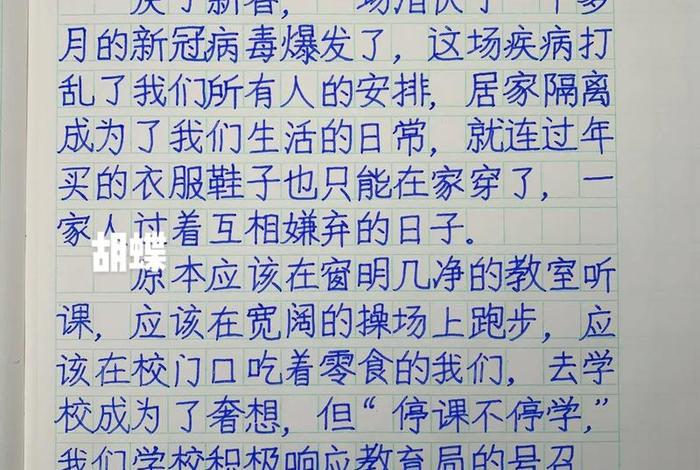 了新春，一场潜伏了一个多
月的新冠病毒爆发了，这场疾病打
乱了我们所有人的安排，居家隔离
成为了我们生活的日常，就连过年
买的衣服鞋子也只能在家穿了，一
家人过着互相嫌弃的日子。
胡蝶
原本应该在窗明几净的教室听
课，应该在宽阔的操场上跑步，应
该在校门口吃着零食的我们，去学
校成为了奢想，但“停课不停学，”
我们学校积极响应教育局的号召